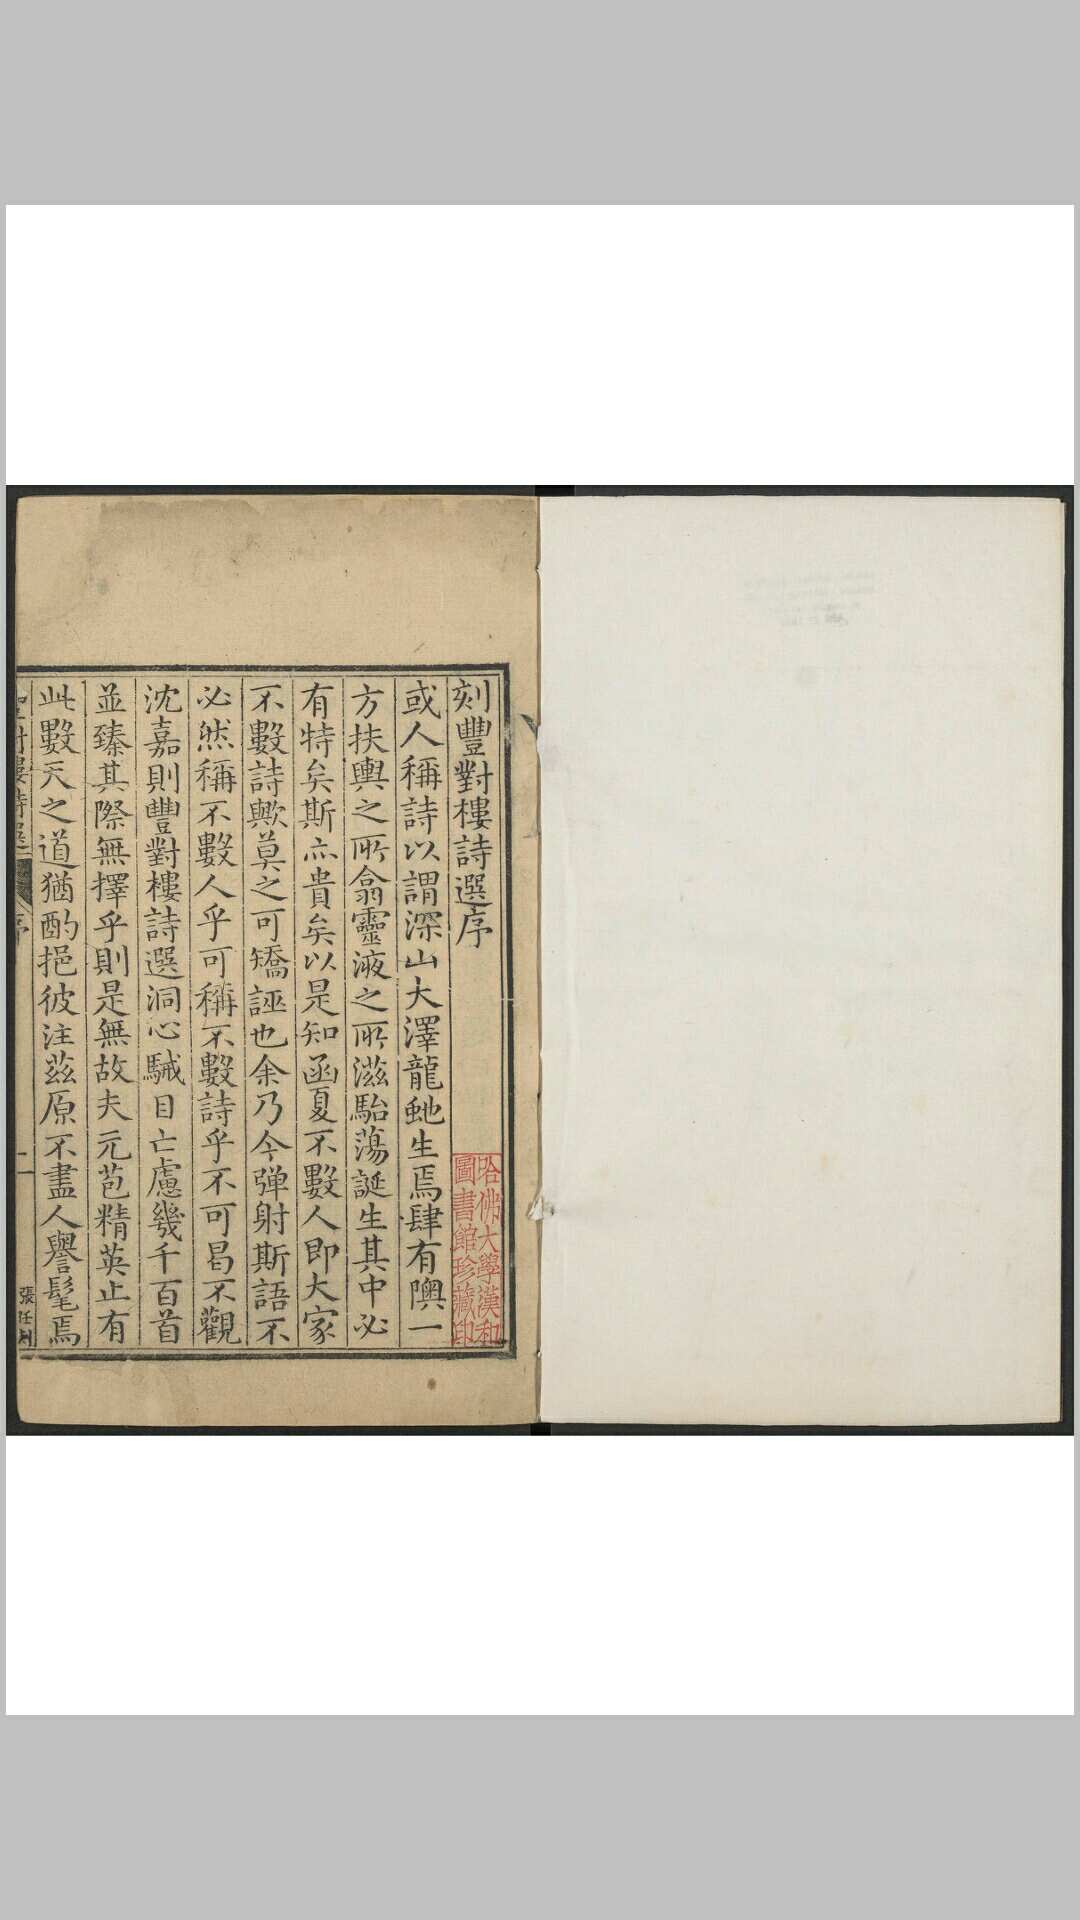 刻豐對樓詩選序
或人稱詩以謂深山大澤龍虵生焉肆有隩一
方扶輿之所翕靈液之所滋駘蕩誕生其中必
有特矣斯亦貴矣以是知函夏不數人即大家
不數詩歟莫之可矯誣也余乃今彈射斯語不
必然稱不數人乎可稱不數詩乎不可曷不觀
沈嘉則豐對樓詩選洞心駴目亡慮幾千百首
並臻其際無擇乎則是無故夫元苞精英止有
此數天之道猶酌挹彼注茲原不盡人譽髦焉
序
一
哈佛大學漢和
圖書館珍藏印